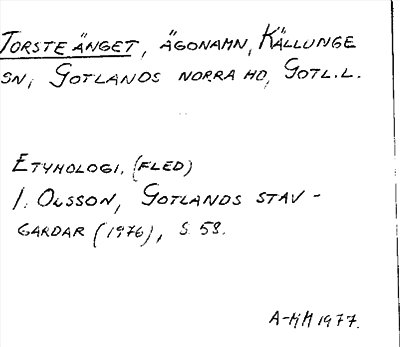 TORSTEÄNGET, ÄGONAMN, KÄLLUNGE
SN, GOTLANDS NORRA HD, GOTL.L.
ETYMOLOGI. (FLED)
I. OLSSON, GOTLANDS STAV-
GARDAR (1976), S. 58.
A-KM 1977.